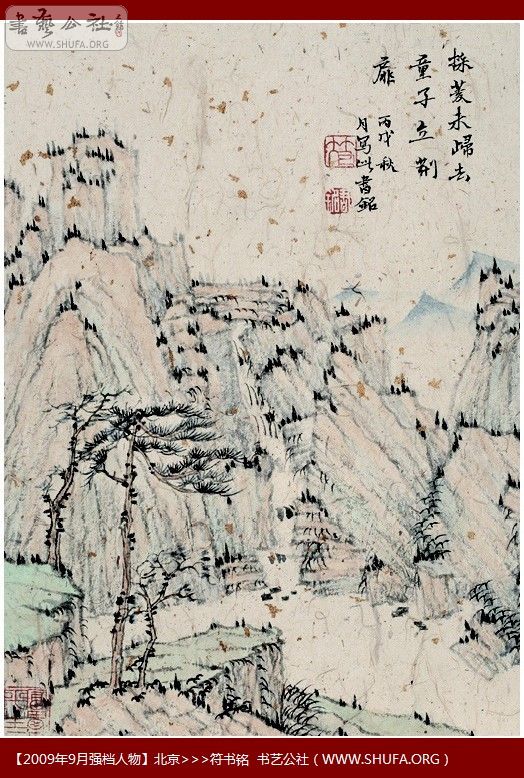 書藝公社
WWW.SHUFA.ORG
採菱未歸去
童子立荆
扉
丙戌秋
月寫此書銘
【2009年9月强档人物】北京>>>符书铭 书艺公社（WWW.SHUFA.ORG）